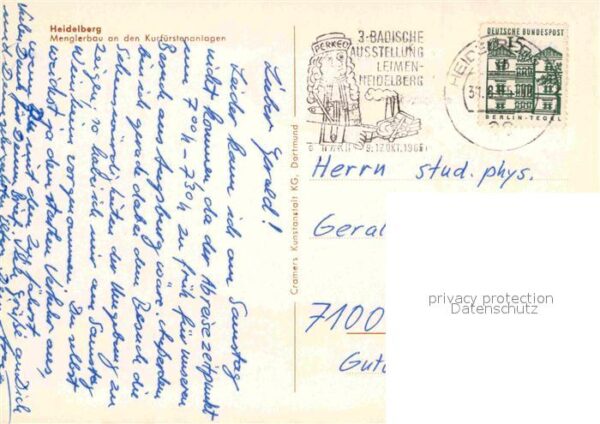 Heidelberg
Menglerbau an den Kurfürstenanlagen
Lieber Gerald!
Leider kann ich am Samstag
nicht kommen, da der Abreisezeitpunkt
um 7.00 h - 7.30 h zu früh für unseren
Besuch aus Augsburg wäre. Außerdem
bin ich grade dabei dem Besuch die
Schönheiten der Umgebung zu
zeigen, so hab ich mir am Samstag
vorgenommen. Du selbst
weichst ja dem starken Verkehr aus,
wenn Du mit der 2
Vielen Dank für Deinen Brief. Viele Grüße an Dich
und
Cramers Kunstanstalt KG, Dortmund
PERKEO
3-BADISCHE
AUSSTELLUNG
LEIMEN-
HEIDELBERG
9.-17. OKT. 1965
HEIDELB
31.8.
15
DEUTSCHE BUNDESPOST
BERLIN-TEGEL
Herrn stud. phys.
Geral
7100
Gut
privacy protection
Datenschutz